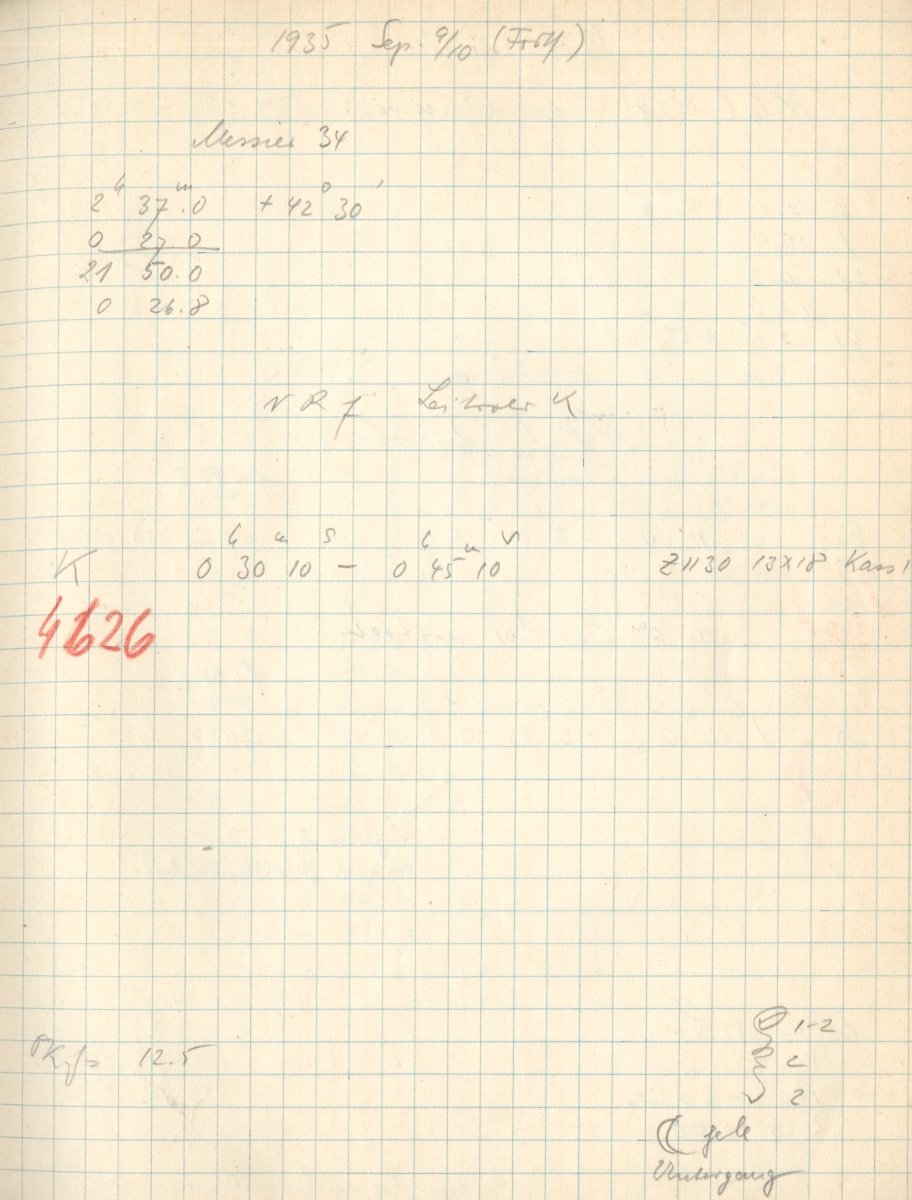 1935 Sep. 9/10 (Forts.)
Messier 34
2h 37m.0 +42° 30'
0 27.0
21 50.0
0 26.8
N R f Leitrohr K
K 0h 30m 10s – 0h 45m 10s Z 1130 13×18 Kass 1
4626
12.5
1-2
2
2
Untergang